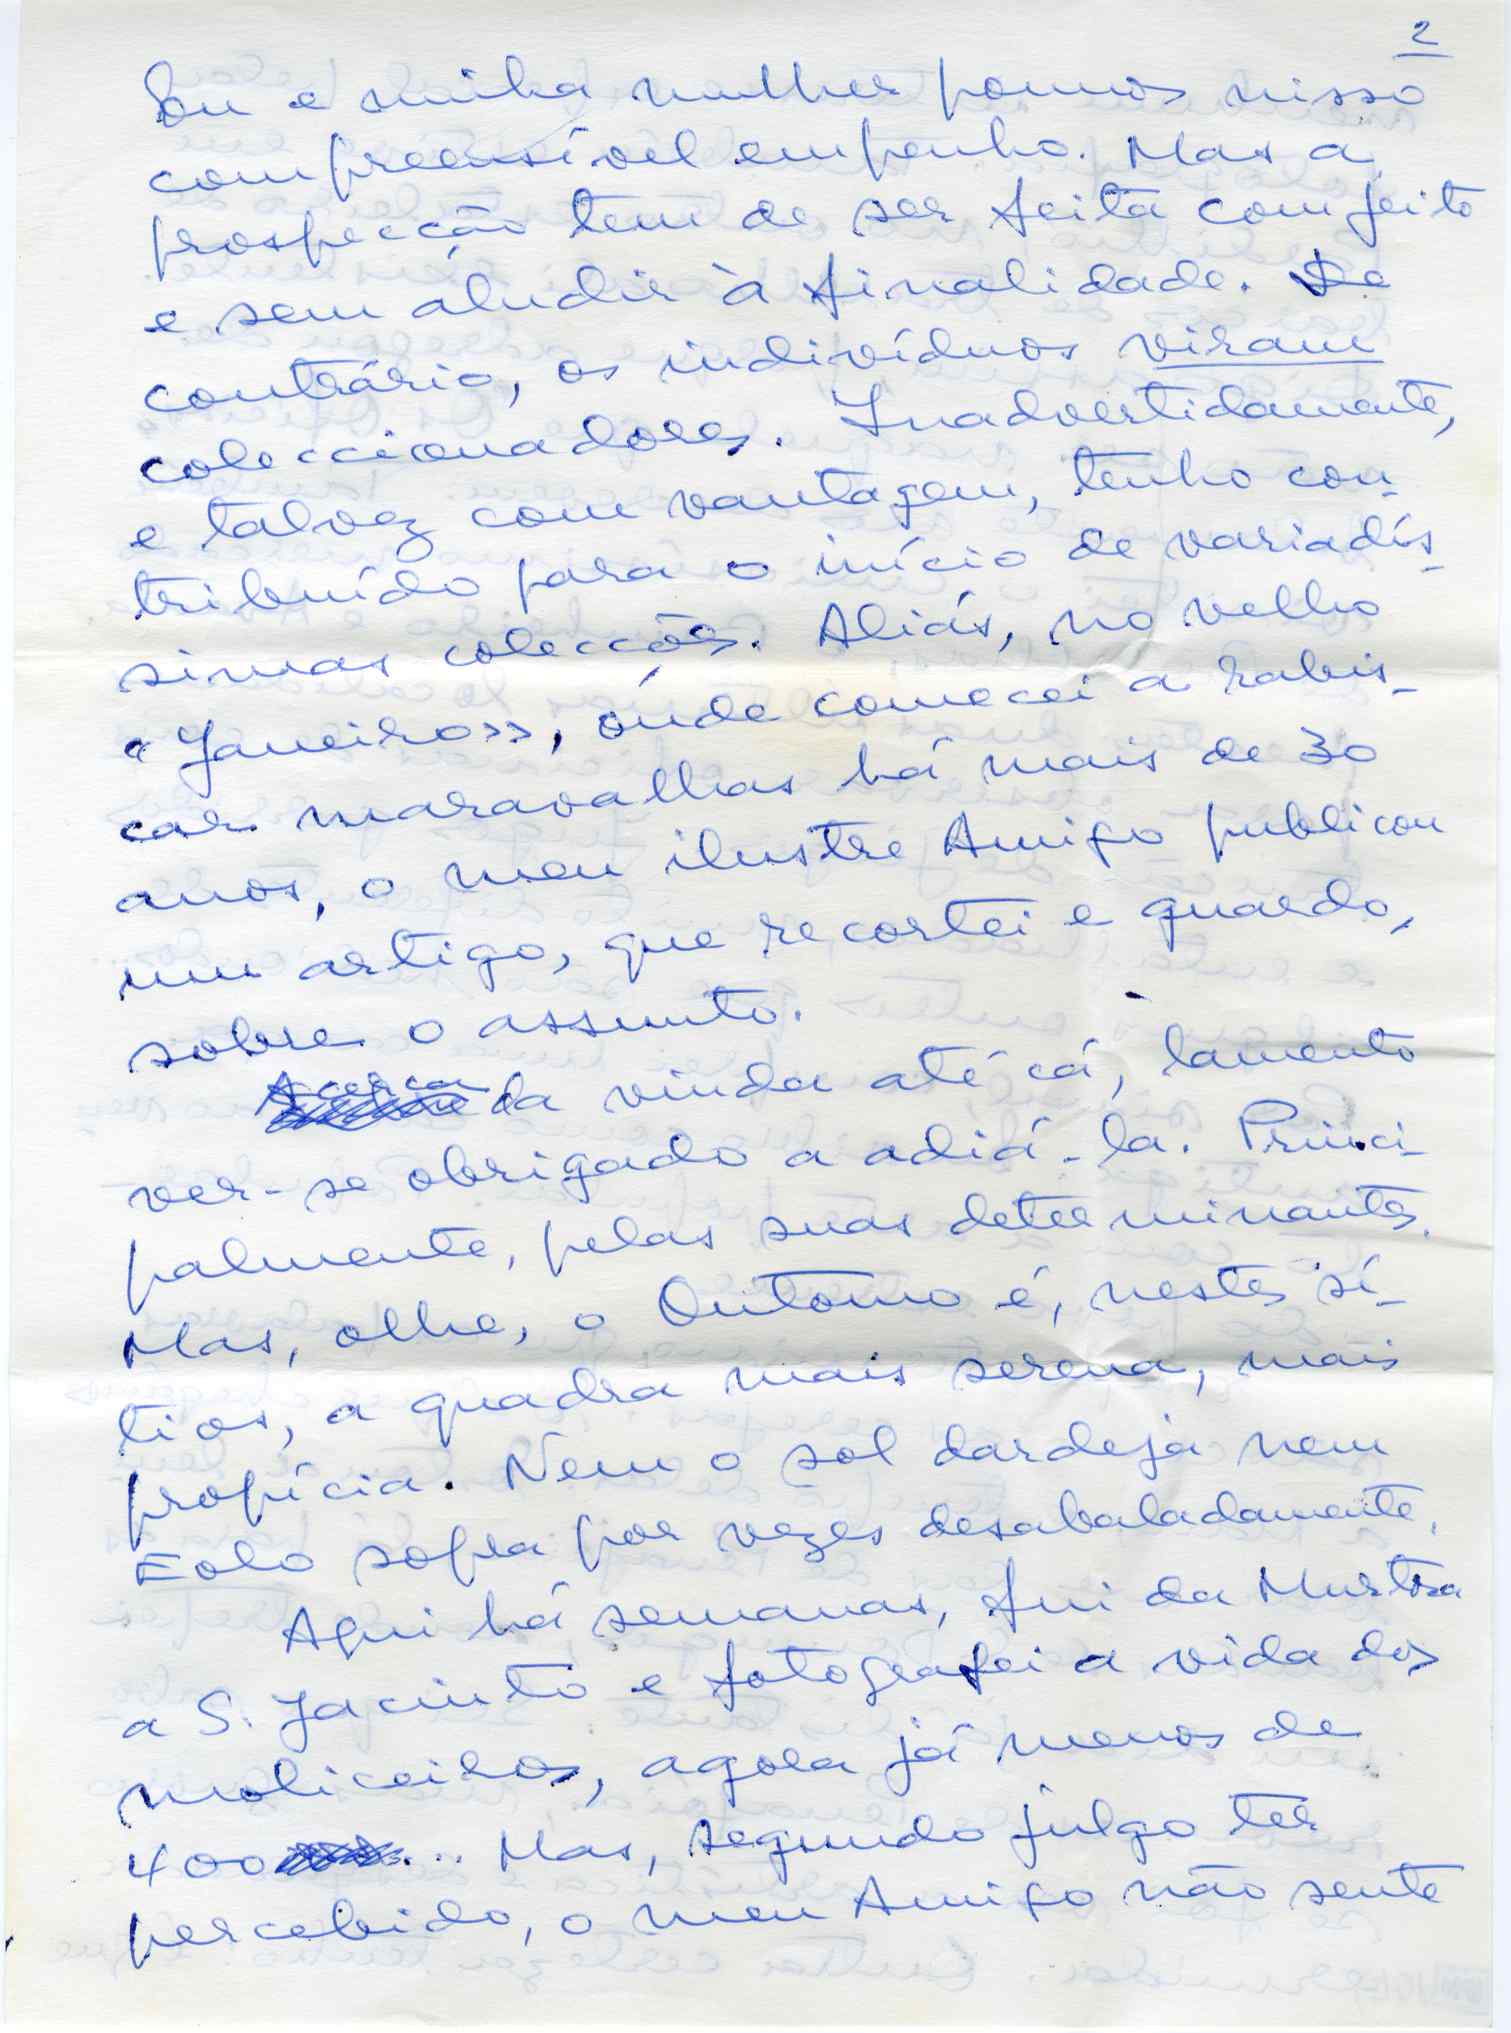 2
Eu e minha mulher pomos nisso
compreensível empenho. Mas a
prospecção tem de ser feita com jeito
e sem aludir à finalidade. De
contrário, os indivíduos viram
coleccionadores. Inadvertidamente,
e talvez com vantagem, tenho con-
tribuído para o início de variadís-
simas colecções. Aliás, no velho
«Janeiro», onde comecei a rabis-
car maravalhas há mais de 30
anos, o meu ilustre Amigo publicou
um artigo, que recortei e guardo,
sobre o assunto.
Acerca da vinda até cá, lamento
ver-se obrigado a adiá-la. Princi-
palmente, pelas suas determinantes.
Mas, olhe, o Outono é, nestes sí-
tios, a quadra mais serena, mais
propícia. Nem o sol dardeja nem
Eolo sopra por vezes desabaladamente.
Aqui há semanas, fui da Murtosa
a S. Jacinto e fotografei a vida dos
moliceiros, agora já menos de
400... Mas, segundo julgo ter
percebido, o meu Amigo não sente